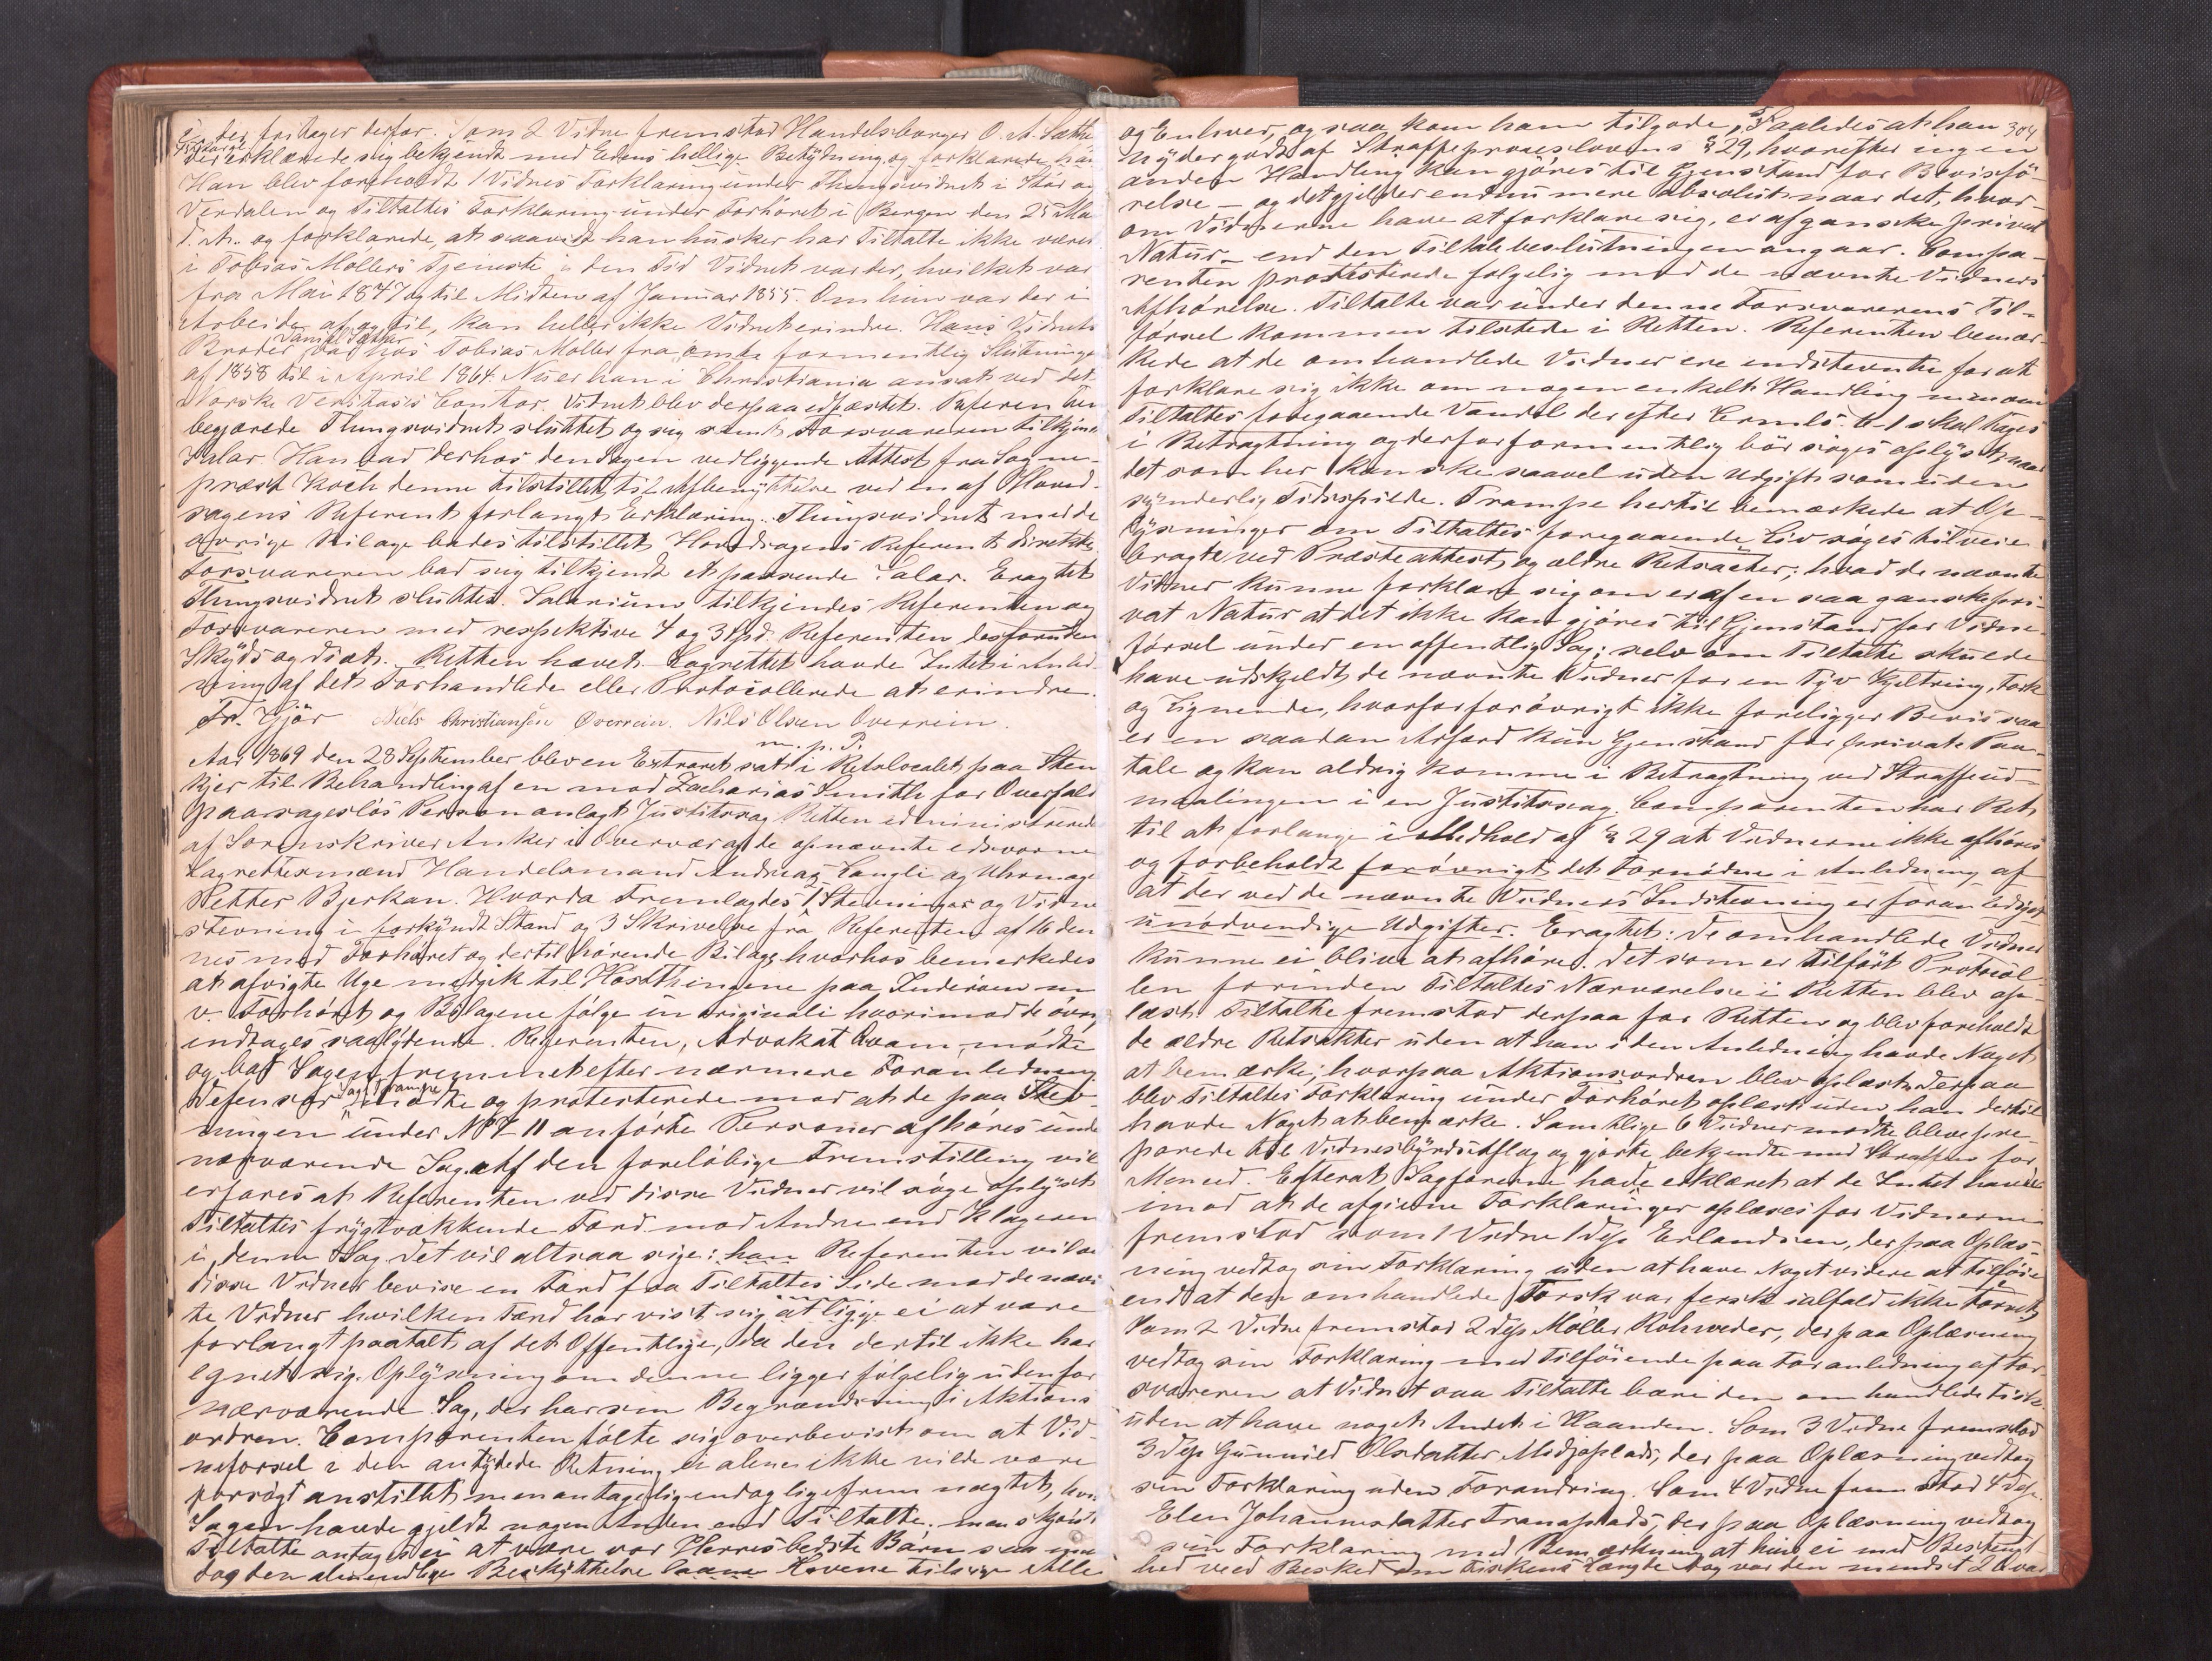 der fritages derfor. Som 2 Vidne fremstod Handelsborger O. A. Sæther
der erklærede sig bekjendt med Edens hellige Betydning og forklarede
Han blev foreholdt 1 Vidnes Forklaring under Thingsvidnet i Stør og
Verdalen og Tiltaltes Forklaring under Forhøret i Bergen den 25
d. A. og forklarede, at saavidt han husker har Tiltalte ikke været
i Tobias Møllers Tjeneste i den Tid Vidnet var der, hvilket var
fra Mai 1847 og til Midten af Januar 1855. Om hun var der i
Arbeide af og til, kan heller ikke Vidnet erindre. Hans Vidnets
Broder Daniel Sæther var hos Tobias Møller fra omtr. formentlig Slutningen
af 1858 til i April 1864. Nu er han i Christiania ansat ved det
Norske Veritas's Contor. Vidnet blev derpaa edfæstet. Referenten
begjærede Thingsvidnet sluttet og sig samt Forsvareren tilkjendt
Salar. Han bad derhos den dagen vedliggende Attest fra Sogne-
præst Koch denne tilstillet til Afbenyttelse ved en af Hoved-
sagens Referent forlangt Erklæring. Thingsvidnet med de
øvrige Bilage bades tilstillet Hovedsagens Referent directe.
Forsvareren bad sig tilkjendt et passende Salar. Eragtet
Thingsvidnet sluttes. Salarium tilkjendes Referenten og
Forsvareren med respektive 4 og 3 Spd. Referenten desforuden
Skyds og Diæt. Retten hævet. Lagrettet havde Intet i Anled-
ning af det Forhandlede eller Protocollerede at erindre.
Fr. Gjør Niels Christiansen Overrein. Nils Olsen Overrein.
m. p. P.
Aar 1869 den 28 September blev en Extraret sat i Retslocalet paa Sten
kjer til Behandling af en mod Zacharias Smith for Overfald
paa sagesløs Person anlagt Justitssag. Retten administreredes
af Sorenskriver Anker i Overvær af de opnævnte edsvorne
Lagrettesmænd Handelsmand Andreas Langli og Uhrmager
Petter Bjerkan. Hvorda Fremlagdes 1 Stevninger og Vidne
stevning i forkyndt Stand og 3 Skrivelse frâ Referenten af 16 den
nes med Forhøret og dertil hørende Bilage hvorhos bemerkedes
at afvigte Uge medgik til Høstthingene paa Inderøen m
v. Forhøret og Bilagene følge in originali hvorimod de øvrige
indtages saalydende. Referenten, Advokat Qvam, mødte
og bad Sagen fremmet efter nærmere Foranledning
Defensor Sagf. Trampe mødte og protesterede mod at de paa Stev-
ningen under No 7-11 anførte Personer afhøres under
nærværende Sag. Af den foreløbige Fremstilling vil
erfares at Referenten ved disse Vidner vil søge oplyst
Tiltaltes frygtvækkende Færd mod Andre end Klageren
i denne Sag. Det vil altsaa sige: han Referenten vil ve
disse Vidner bevise en Færd fra Tiltaltes Side mod de nævn
te Vidner hvilken Færd har vist sig at ligge ei at være
forlangt paatalt af det Offentlige, da den dertil ikke har
egnet sig. Oplysning om denne ligger følgelig udenfor
nærværende Sag, der har sin Begrændsning i Aktions
ordren. Comparenten følte sig overbevist om at Vid-
neførsel i den antydede Retning ei alene ikke vilde være
forsøgt anstillet men antagelig endog ligefrem nægtet, hvis
Sagen havde gjeldt nogen Anden end Tiltalte. men skjønt
Tiltalte antages ei at være vor Herres bedste Barn saa maa
dog den almindelige Beskyttelse Lovene tilsige Alle
og Enhver, ogsaa kom ham tilgode. Saaledes at han 304
nyder godt af Straffeproceslovens § 29, hvorefter ingen
anden Handling kan gjøres til Gjenstand for Bevisfø-
relse - og det gjelder endnu mere absolut naar det, hvor-
om Vidnerne have at forklare sig, er af ganske privat
Natur - end den Tiltalebeslutningen angaar. Compa-
renten protesterede følgelig mod de nævnte Vidners
Afhørelse. Tiltalte var under denne Forsvarerens Til-
førsel kommen tilstede i Retten. Referenten bemær-
kede at de omhandlede Vidner ere indstevnte for at
forklare sig ikke om nogen enkelt Handling men om
Tiltaltes foregaaende Vandel der efter Crmls. 6-1 skal tages
i Betragtning og derfor formentlig bør søges oplyst, naar
det som her kan ske saavel uden Udgift som uden
synderlig Tidsspilde. Trampe hertil bemærkede at Op-
lysninger om Tiltaltes foregaaende Liv søges tilveie
bragte ved Præsteattest og ældre Retsacter; hvad de nævnte
Vidner kunne forklare sig om er af en saa ganske pri-
vat Natur at det ikke kan gjøres til Gjenstand for Vidne-
førsel under en offentlig Sag; selv om Tiltalte skulde
have udskjeldt de nævnte Vidner for en Tyv Kjeltring, Tosk
og Lignende, hvorfor forøvrigt ikke foreligger Bevis saa
er en saadan Adfærd kun Gjenstand for private Paa-
tale og kan aldrig komme i Betragtning ved Straffeud-
maalingen i en Justitssag. Comparenten har Ret
til at forlange i Medhold af § 29 at Vidnerne ikke afhøres
og forbeholdt forøvrigt det Fornødne i Anledning af
at der ved de nævnte Vidners Indstevning er foranlediget
unødvendige Udgifter. Eragtet: De omhandlede Vidner
kunne ei blive at afhøre. Det som er tilført Protocol-
len forinden Tiltaltes Nærværelse i Retten blev op-
læst. Tiltalte fremstod derpaa for Retten og blev foreholdt
de ældre Retsakter uden at han i den Anledning havde Noget
at bemærke; hvorpaa Aktionsordren blev oplæst. Derpaa
blev Tiltaltes Forklaring under Forhøret oplæst uden han dertil
havde Noget at bemærke. Samtlige 6 Vidner mødte bleve pre-
parede til Vidnesbyrds Aflæg og gjorte bekjendte med Straffen for
Mened. Efterat Sagførerne havde erklæret at de Intet havde
imod at de afgivne Forklaringer oplæses for Vidnerne
fremstod som 1 Vidne 1 dep Erlandsen, der paa Oplæs-
ning vedtog sin Forklaring uden at have Noget videre at tilføie
end at den omhandlede Torsk var fersk ialfald ikke tørret,
Som 2 Vidne fremstod 2 dep Møller Rohweder, der paa Oplæsning
vedtog sin Forklaring med Tilføiende paa Foranledning af For-
svareren at Vidnet saa Tiltalte bære den omhandlede Fisk
uden at have noget Andet i Haanden. Som 3 Vidne fremstod
3 dep Gunnild Olsdatter Midjoplads, der paa Oplæsning vedtog
sin Forklaring uden Forandring. Som 4 Vidne fremstod 4 dep.
Elen Johannesdatter Tranaplads, der paa Oplæsning vedtog
sin Forklaring med Bemærkning at hun ei med Bestemt
hed veed Besked om Fiskens Længde dog var den mindst 2 Qvar